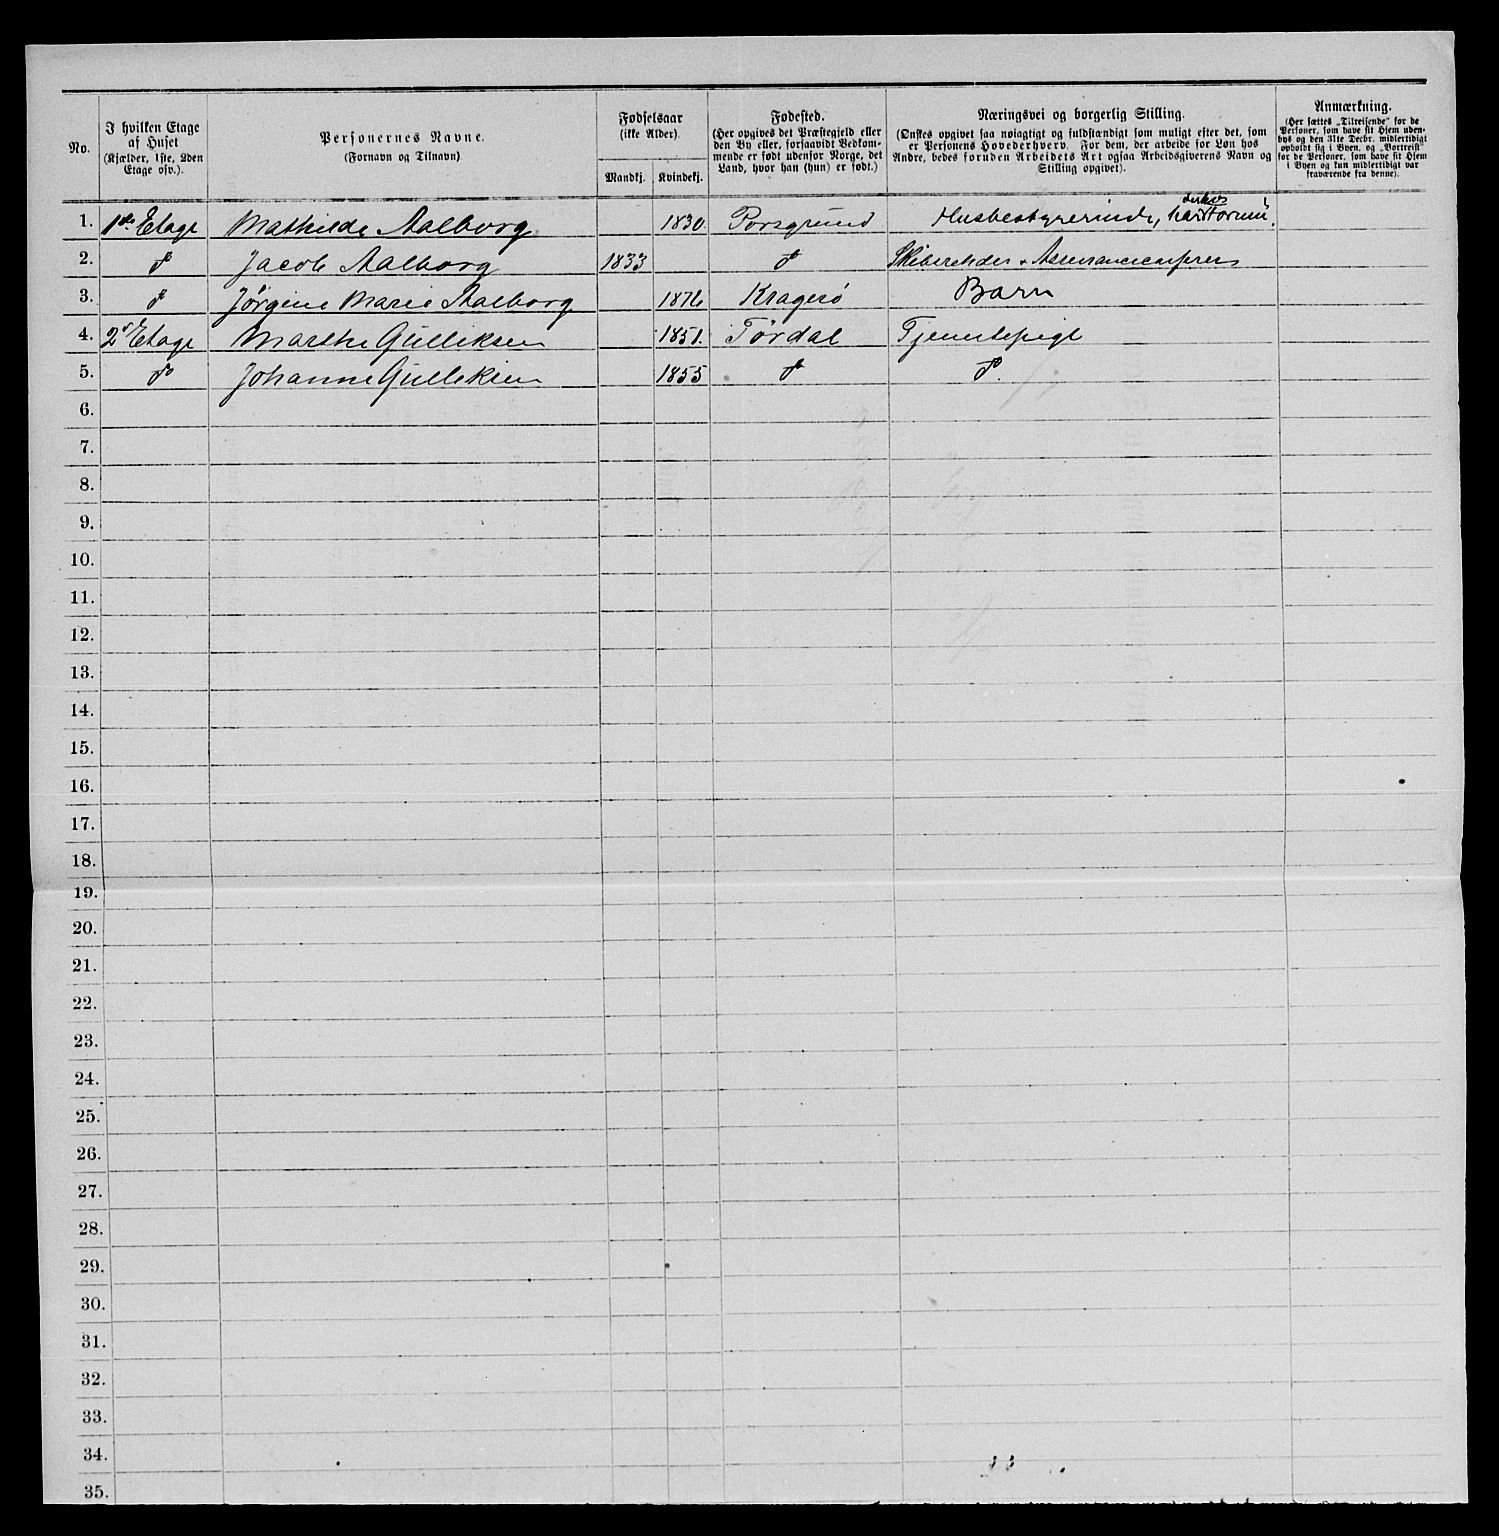 No.
I hvilken Etage
af Huset
(Kjælder, 1ste, 2den
Etage osv.).
Personernes Navne.
(Fornavn og Tilnavn)
Fødselsaar
(ikke Alder).
Mandkj. Kvindekj.
Fødested.
(Her opgives det Præstegjeld eller
den By eller, forsaavidt Vedkom-
mende er født udenfor Norge, det
Land, hvor han (hun) er født.)
Næringsvei og borgerlig Stilling.
(Ønskes opgivet saa nøiagtigt og fuldstændigt som muligt efter det, som
er Personens Hovederhverv. For dem, der arbeide for Løn hos
Andre, bedes foruden Arbeidets Art ogsaa Arbeidsgiverens Navn og
Stilling opgivet).
Anmærkning.
(Her sættes „Tilreisende" for de
Personer, som have sit Hjem uden-
bys og den 31te Decbr. midlertidigt
opholdt sig i Byen, og „Bortreist"
for de Personer, som have sit Hjem
i Byen og kun midlertidigt var
fraværende fra denne).
1. 1ste Etage Mathilde Aalborg 1830. Porsgrund Husbestyrerinde,
2. do Jacob Aalborg 1833 do Skibsrheder +
3. do Jørgine Marie Aalborg 1876 Kragerø Barn
4. 2 Etage Marthe Gulliksen 1851. Tørdal Tjenestepige
5. do Johanne Gulliksen 1855 do do.
6.
7.
8.
9.
10.
11.
12.
13.
14.
15.
16.
17.
18.
19.
20.
21.
22.
23.
24.
25.
26.
27.
28.
29.
30.
31.
32.
33.
34.
35.